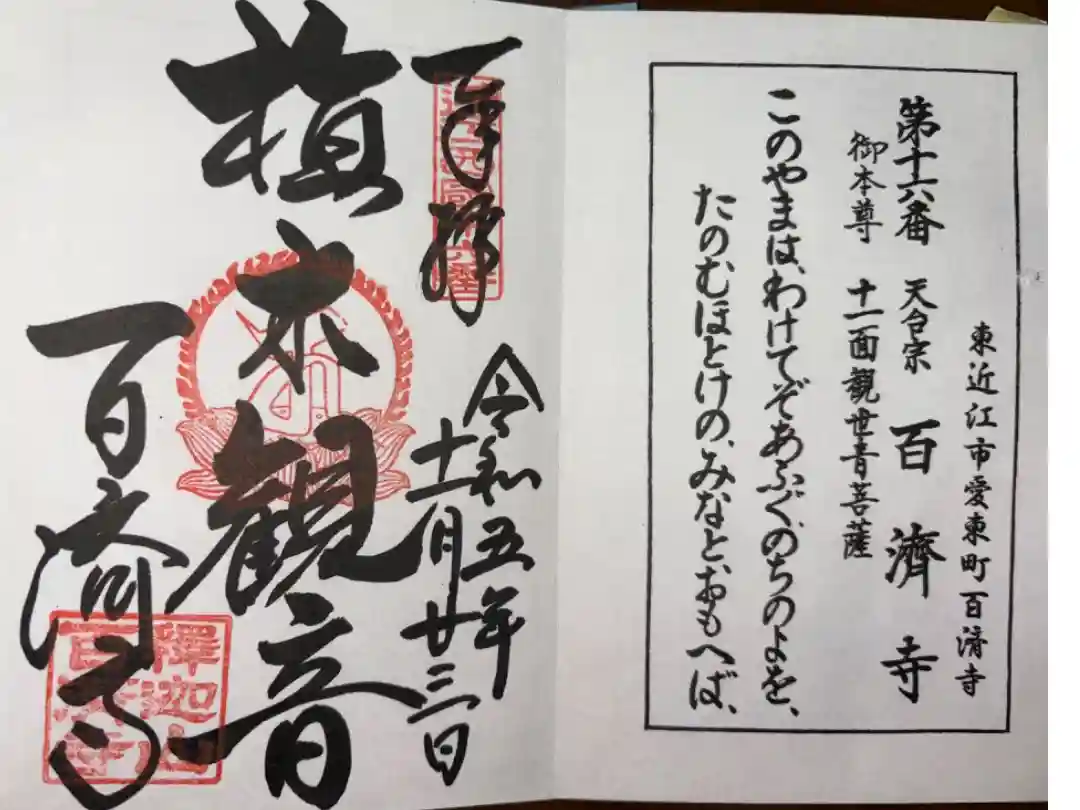 東近江市愛東町百済寺
第十六番 天台宗 百濟寺
御本尊 十一面観世音菩薩
このやまは、わけてぞあふぐ、のちのよを、
たのむほとけの、みなとおもへば、
奉拝
令和五年
十一月廿三日
植木観音
百済寺
釋迦山
百済寺